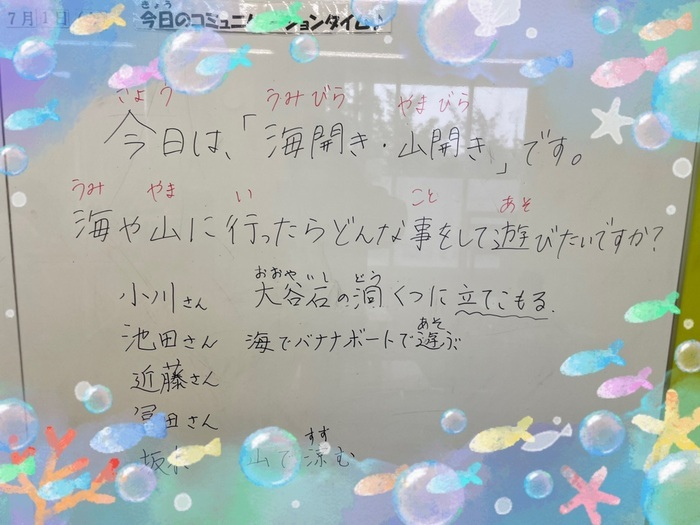 7月1日
きょう
今日のコミュニケーションタイム♪
きょう うみびら やまびら
今日は、「海開き・山開き」です。
うみ やま い こと あそ
海や山に行ったらどんな事をして遊びたいですか?
おおやいし どう
小川さん 大谷石の洞くつに立てこもる.
あそ
池田さん 海でバナナボートで遊ぶ
近藤さん
冨田さん
すす
坂 山で涼む